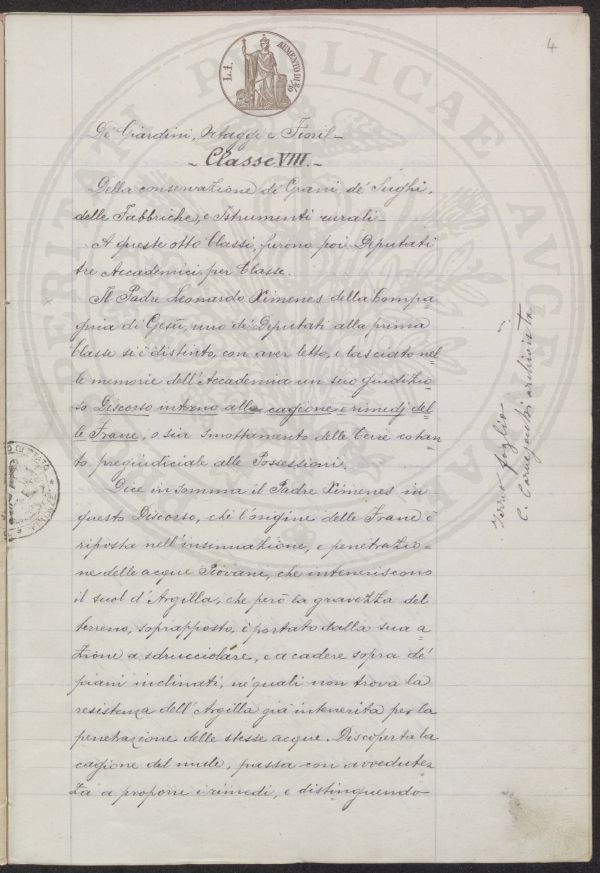 4
L.1.
AUMENTO DI 2/10
De Giardini, Ortaggi e Fiori. -
- Classe VIII. -
Della conservazione de' Grani de' Sughi,
delle Fabbriche, e Istrumenti rurali -
A queste otto Classi, furono poi Deputati
tre Accademici per Classe.
Il Padre Leonardo Ximenes della Compa-
gnia di Gesù, uno di Deputati alla prima
Classe si è distinto, con aver letto, e lasciato nel
le memorie dell'Accademia un suo giudizio-
so Discorso intorno alla cagione e rimedj del-
le Frane, o sia smottamento delle Terre cotan-
to pregiudiciale alle Possessioni.
Dice in somma il Padre Ximenes in
questo Discorso, che l'origine delle Frane è
riposta nell'insinuazione, e penetrazio-
ne delle acque Piovane, che inteneriscono
il suol d'Argilla, che però la gravezza del
terreno, soprapposto, è portato dalla sua a-
zione a sdrucciolare, e a cadere sopra de'
piani inclinati, ne' quali non trova la
resistenza dell'Argilla già intenerita per la
penetrazione delle stesse acque. Discoperta la
cagione del male, passa con avvedutez
za a proporre i rimedi, e distinguendo
foglio
C. archivista
PUBLICAE